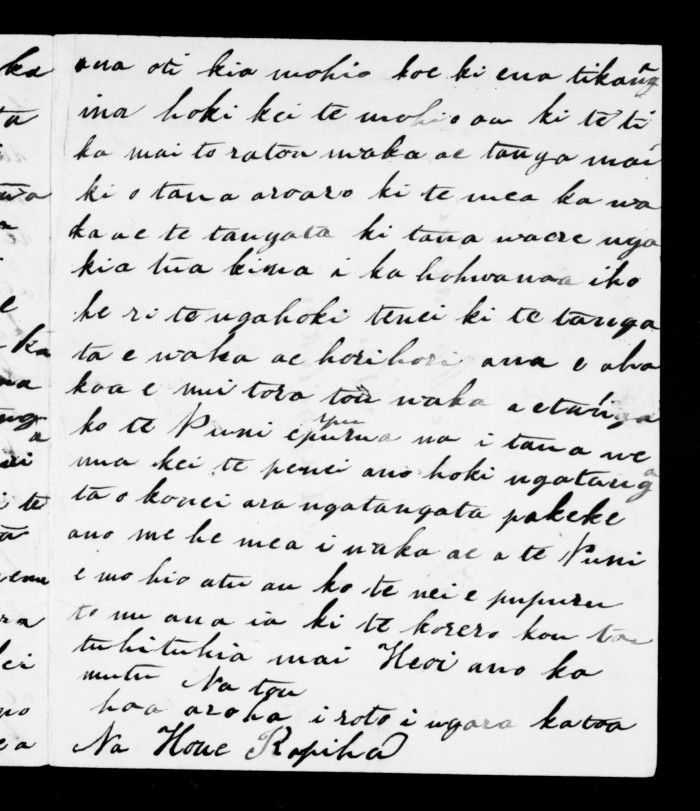 ka
ta
ka
na
i te
ra
ana oti kia mohio koe ki ena tikang
ina hoki kei te mohio au ki te ti
ka mai to ratou waka ae tanga mai
ki o tana aroaro ki te mea ka wa
ka ae te tangata ki tana waere nga
kia tua kina i ka hohwanaa iho
he ri te ngahoki tenei ki te tanga
ta e waka ae horihori ana e aha
koa e nui tora tou waka aetanga
ko te Puni epurua na i tana we
nua kei te penei ano hoki ngatanga
ta o konei ara ngatangata pakeke
ano me he mea i waka ae a te Puni
e mo hio atu au ko te nei e pupuru
to nu ana ia ki te korero kou
tuhituhia mai Heoi ano ka
mutu Na tou
hoa aroha i roto i ngara katoa
Na Hone Ropiha